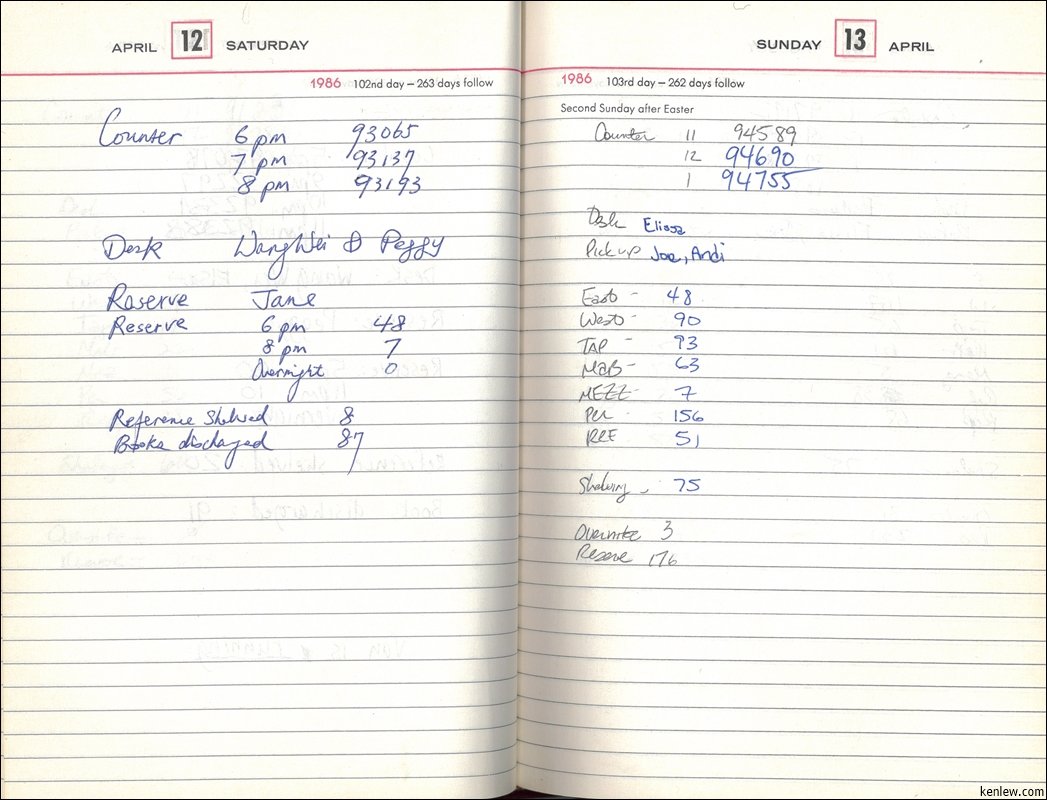 APRIL 12 SATURDAY
1986 102nd day – 263 days follow
Counter 6 pm 93065
7 pm 93137
8 pm 93193
Desk Wang Wei & Peggy
Raserve Jane
Reserve 6 pm 48
8 pm 7
Overnight 0
Reference Shelved 8
Books discharged 87
SUNDAY 13 APRIL
1986 103rd day – 262 days follow
Second Sunday after Easter
Counter 11 94589
12 94690
1 94755
Desk Elissa
Pick up Joe, Andi
East - 48
West - 90
TAP - 93
MAB - 63
MEZZ - 7
Per - 156
REF 51
Shelving - 75
Overnite 3
Reserve 176
kenlew.com